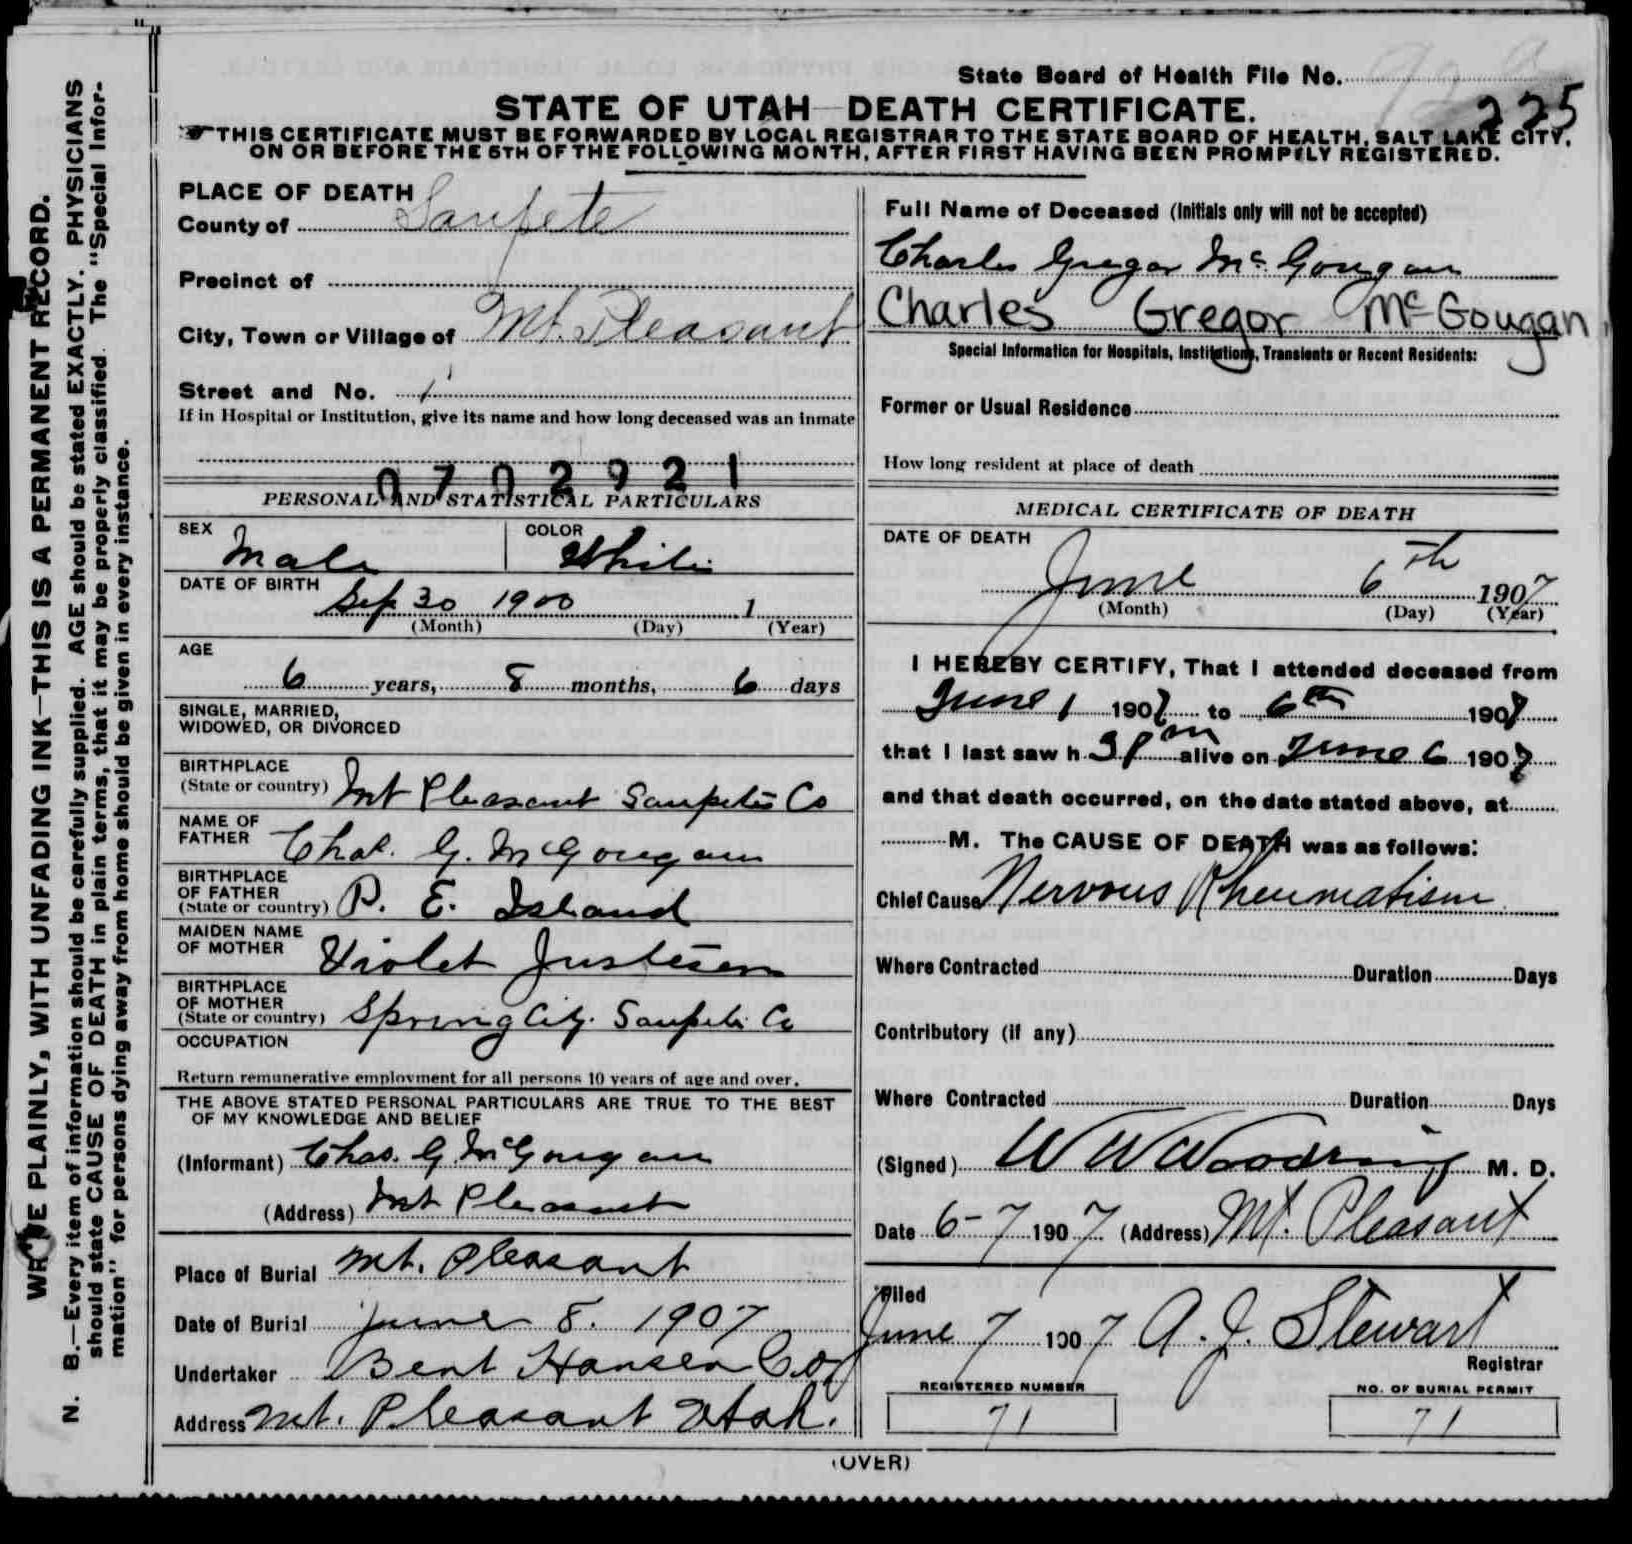 State Board of Health File No.
225
STATE OF UTAH—DEATH CERTIFICATE.
THIS CERTIFICATE MUST BE FORWARDED BY LOCAL REGISTRAR TO THE STATE BOARD OF HEALTH, SALT LAKE CITY,
ON OR BEFORE THE 5TH OF THE FOLLOWING MONTH, AFTER FIRST HAVING BEEN PROMPTLY REGISTERED.
WRITE PLAINLY, WITH UNFADING INK—THIS IS A PERMANENT RECORD.
N. B.—Every item of information should be carefully supplied. AGE should be stated EXACTLY. PHYSICIANS
should state CAUSE OF DEATH in plain terms, that it may be properly classified. The "Special Infor-
mation" for persons dying away from home should be given in every instance.
PLACE OF DEATH
County of Sanpete
Precinct of
City, Town or Village of Mt. Pleasant
Street and No.
If in Hospital or Institution, give its name and how long deceased was an inmate
0702921
PERSONAL AND STATISTICAL PARTICULARS
SEX Male COLOR White
DATE OF BIRTH Sep 30 1900 1
(Month) (Day) (Year)
AGE
6 years, 8 months, 6 days
SINGLE, MARRIED,
WIDOWED, OR DIVORCED
BIRTHPLACE
(State or country) Mt Pleasant Sanpete Co
NAME OF
FATHER Chas. G. McGougan
BIRTHPLACE
OF FATHER
(State or country) P. E. Island
MAIDEN NAME
OF MOTHER Violet Justesen
BIRTHPLACE
OF MOTHER
(State or country) Spring City. Sanpete Co
OCCUPATION
Return remunerative employment for all persons 10 years of age and over.
THE ABOVE STATED PERSONAL PARTICULARS ARE TRUE TO THE BEST
OF MY KNOWLEDGE AND BELIEF
(Informant) Chas. G. McGougan
(Address) Mt Pleasant
Place of Burial Mt. Pleasant
Date of Burial June 8. 1907
Undertaker Bent Hansen Co
Address Mt. Pleasant Utah.
Full Name of Deceased (Initials only will not be accepted)
Charles Gregor McGougan
Charles Gregor McGougan
Special Information for Hospitals, Institutions, Transients or Recent Residents:
Former or Usual Residence
How long resident at place of death
MEDICAL CERTIFICATE OF DEATH
DATE OF DEATH
June 6th 1907
(Month) (Day) (Year)
I HEREBY CERTIFY, That I attended deceased from
June 1 1907 to 6th 1907
that I last saw h 3 Pm alive on June 6 1907
and that death occurred, on the date stated above, at
M. The CAUSE OF DEATH was as follows:
Chief Cause Nervous Rheumatism
Where Contracted Duration Days
Contributory (if any)
Where Contracted Duration Days
(Signed) W W Woodring M. D.
Date 6-7 1907 (Address) Mt. Pleasant
Filed
June 7 1907 A. J. Stewart
Registrar
REGISTERED NUMBER NO. OF BURIAL PERMIT
71 71
(OVER)